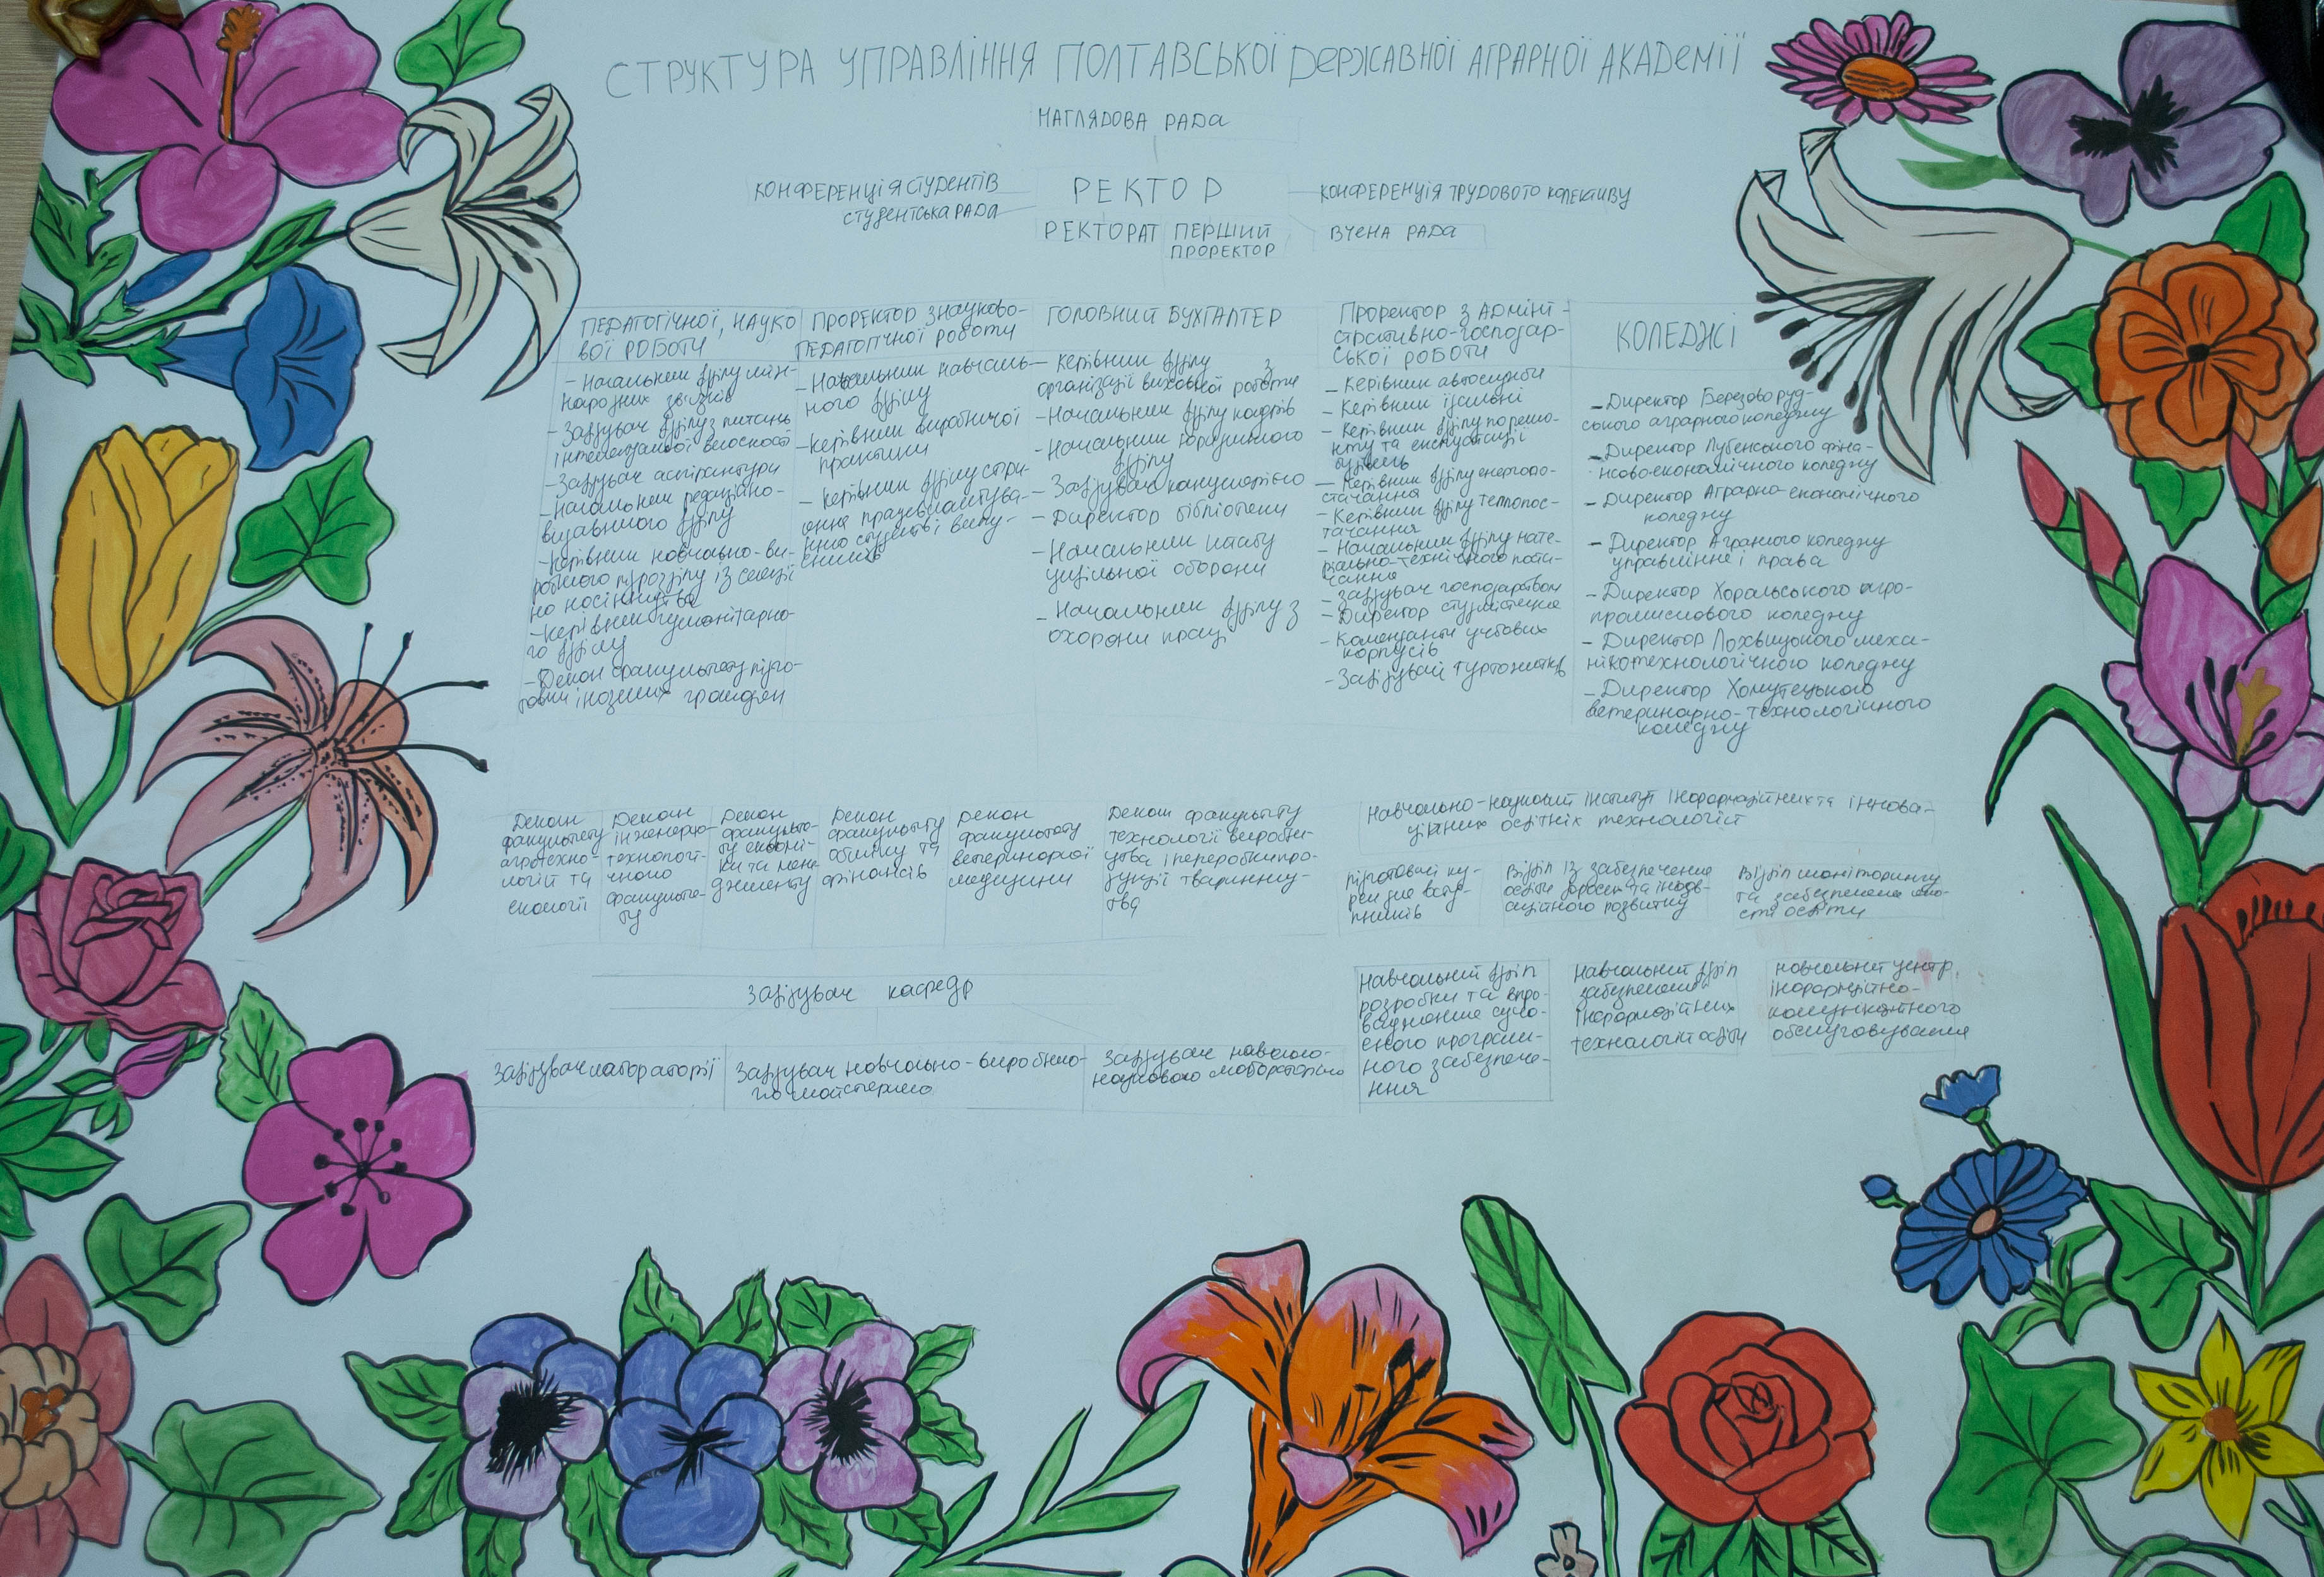 СТРУКТУРА УПРАВЛІННЯ ПОЛТАВСЬКОЇ ДЕРЖАВНОЇ АГРАРНОЇ АКАДЕМІЇ
НАГЛЯДОВА РАДА
КОНФЕРЕНЦІЯ СТУДЕНТІВ
СТУДЕНТСЬКА РАДА
РЕКТОР
КОНФЕРЕНЦІЯ ТРУДОВОГО КОЛЕКТИВУ
РЕКТОРАТ
ПЕРШИЙ
ПРОРЕКТОР
ВЧЕНА РАДА
ПЕДАГОГІЧНОЇ, НАУКО
ВОЇ РОБОТИ
- Начальник відділу між-
народних звязків
- Завідувач відділу з питань
інтелектуальної власності
- Завідувач аспірантури
- Начальник редаційно-
видавничого відділу
- Керівник навчально-ви-
робничого підрозділу із
но насінництва
- Керівник гуманітарно-
го відділу
- Декан факультету підго-
товки іноземних громадян
ПРОРЕКТОР З НАУКОВО-
ПЕДАГОГІЧНОЇ РОБОТИ
- Начальник навчаль-
ного відділу
- Керівник виробничої
практики
- Керівник відділу спри-
яння працевлаштува-
нню студентів і випу-
скників
ГОЛОВНИЙ БУХГАЛТЕР
- Керівник відділу з
організації виховної роботи
- Начальник відділу кадрів
- Начальник юридичного
відділу
- Завідувач канцелярією
- Директор бібліотеки
- Начальник штабу
цивільної оборони
- Начальник відділу з
охорони праці
Проректор з Адмініт-
стративно-господар-
ської роботи
- Керівник автослужби
- Керівник їдальні
- Керівник відділу по ремо-
нту та експуатації
будівель
- Керівник відділу енергопо-
стачання
- Керівник відділу теплопос-
тачання
- Начальник відділу мате-
ріально-технічного поста-
чання
- Завідувач господарством
- Директор студмістечка
- Коменданти учбових
корпусів
- Завідувачі гуртожитків
КОЛЕДЖІ
- Директор Березоворуд-
ського аграрного коледжу
- Директор Лубенського фіна-
нсово-економічного коледжу
- Директор Аграрно-економічного
коледжу
- Директор Аграного коледжу
управління і права
- Директор Хорольського агро-
промислового коледжу
- Директор Лохвицького меха-
нікотехнологічного коледжу
- Директор Хомутецького
ветеринарно-технологічного
коледжу
Декан
факультету
агротехно-
логій та
екології
Декан
інженерно-
технологі-
чного
факульте-
ту
Декан
факульте-
ту економі-
ки та мене
джменту
Декан
факультету
обліку та
фінансів
Декан
факультету
ветеринарної
медицини
Декан факультету
технології виробни-
цтва і переробки про-
дукції тваринни-
тва
Навчально-науковий інститут інформаційних та іннова-
ційних освітніх технологій
Підготовчі ку-
рси для всту-
пників
Відділ із забезпечення
освіти дорослих та іннов-
аційного розвитку
Відділ моніторингу
та забезпечення яко-
сті освіти
Завідувач кафедр
Навчальний відділ
розробки та впро-
вадження суча-
сного програм-
ного забезпече-
ння
Навчальний відділ
забезпечення
інформаційних
технологій освіти
Навчальний центр
інформаційно-
комунікатного
обслуговування
Завідувач лабораторії
Завідувач навчально-виробни-
чо майстернею
Завідувач навчально-
науковою лабораторією